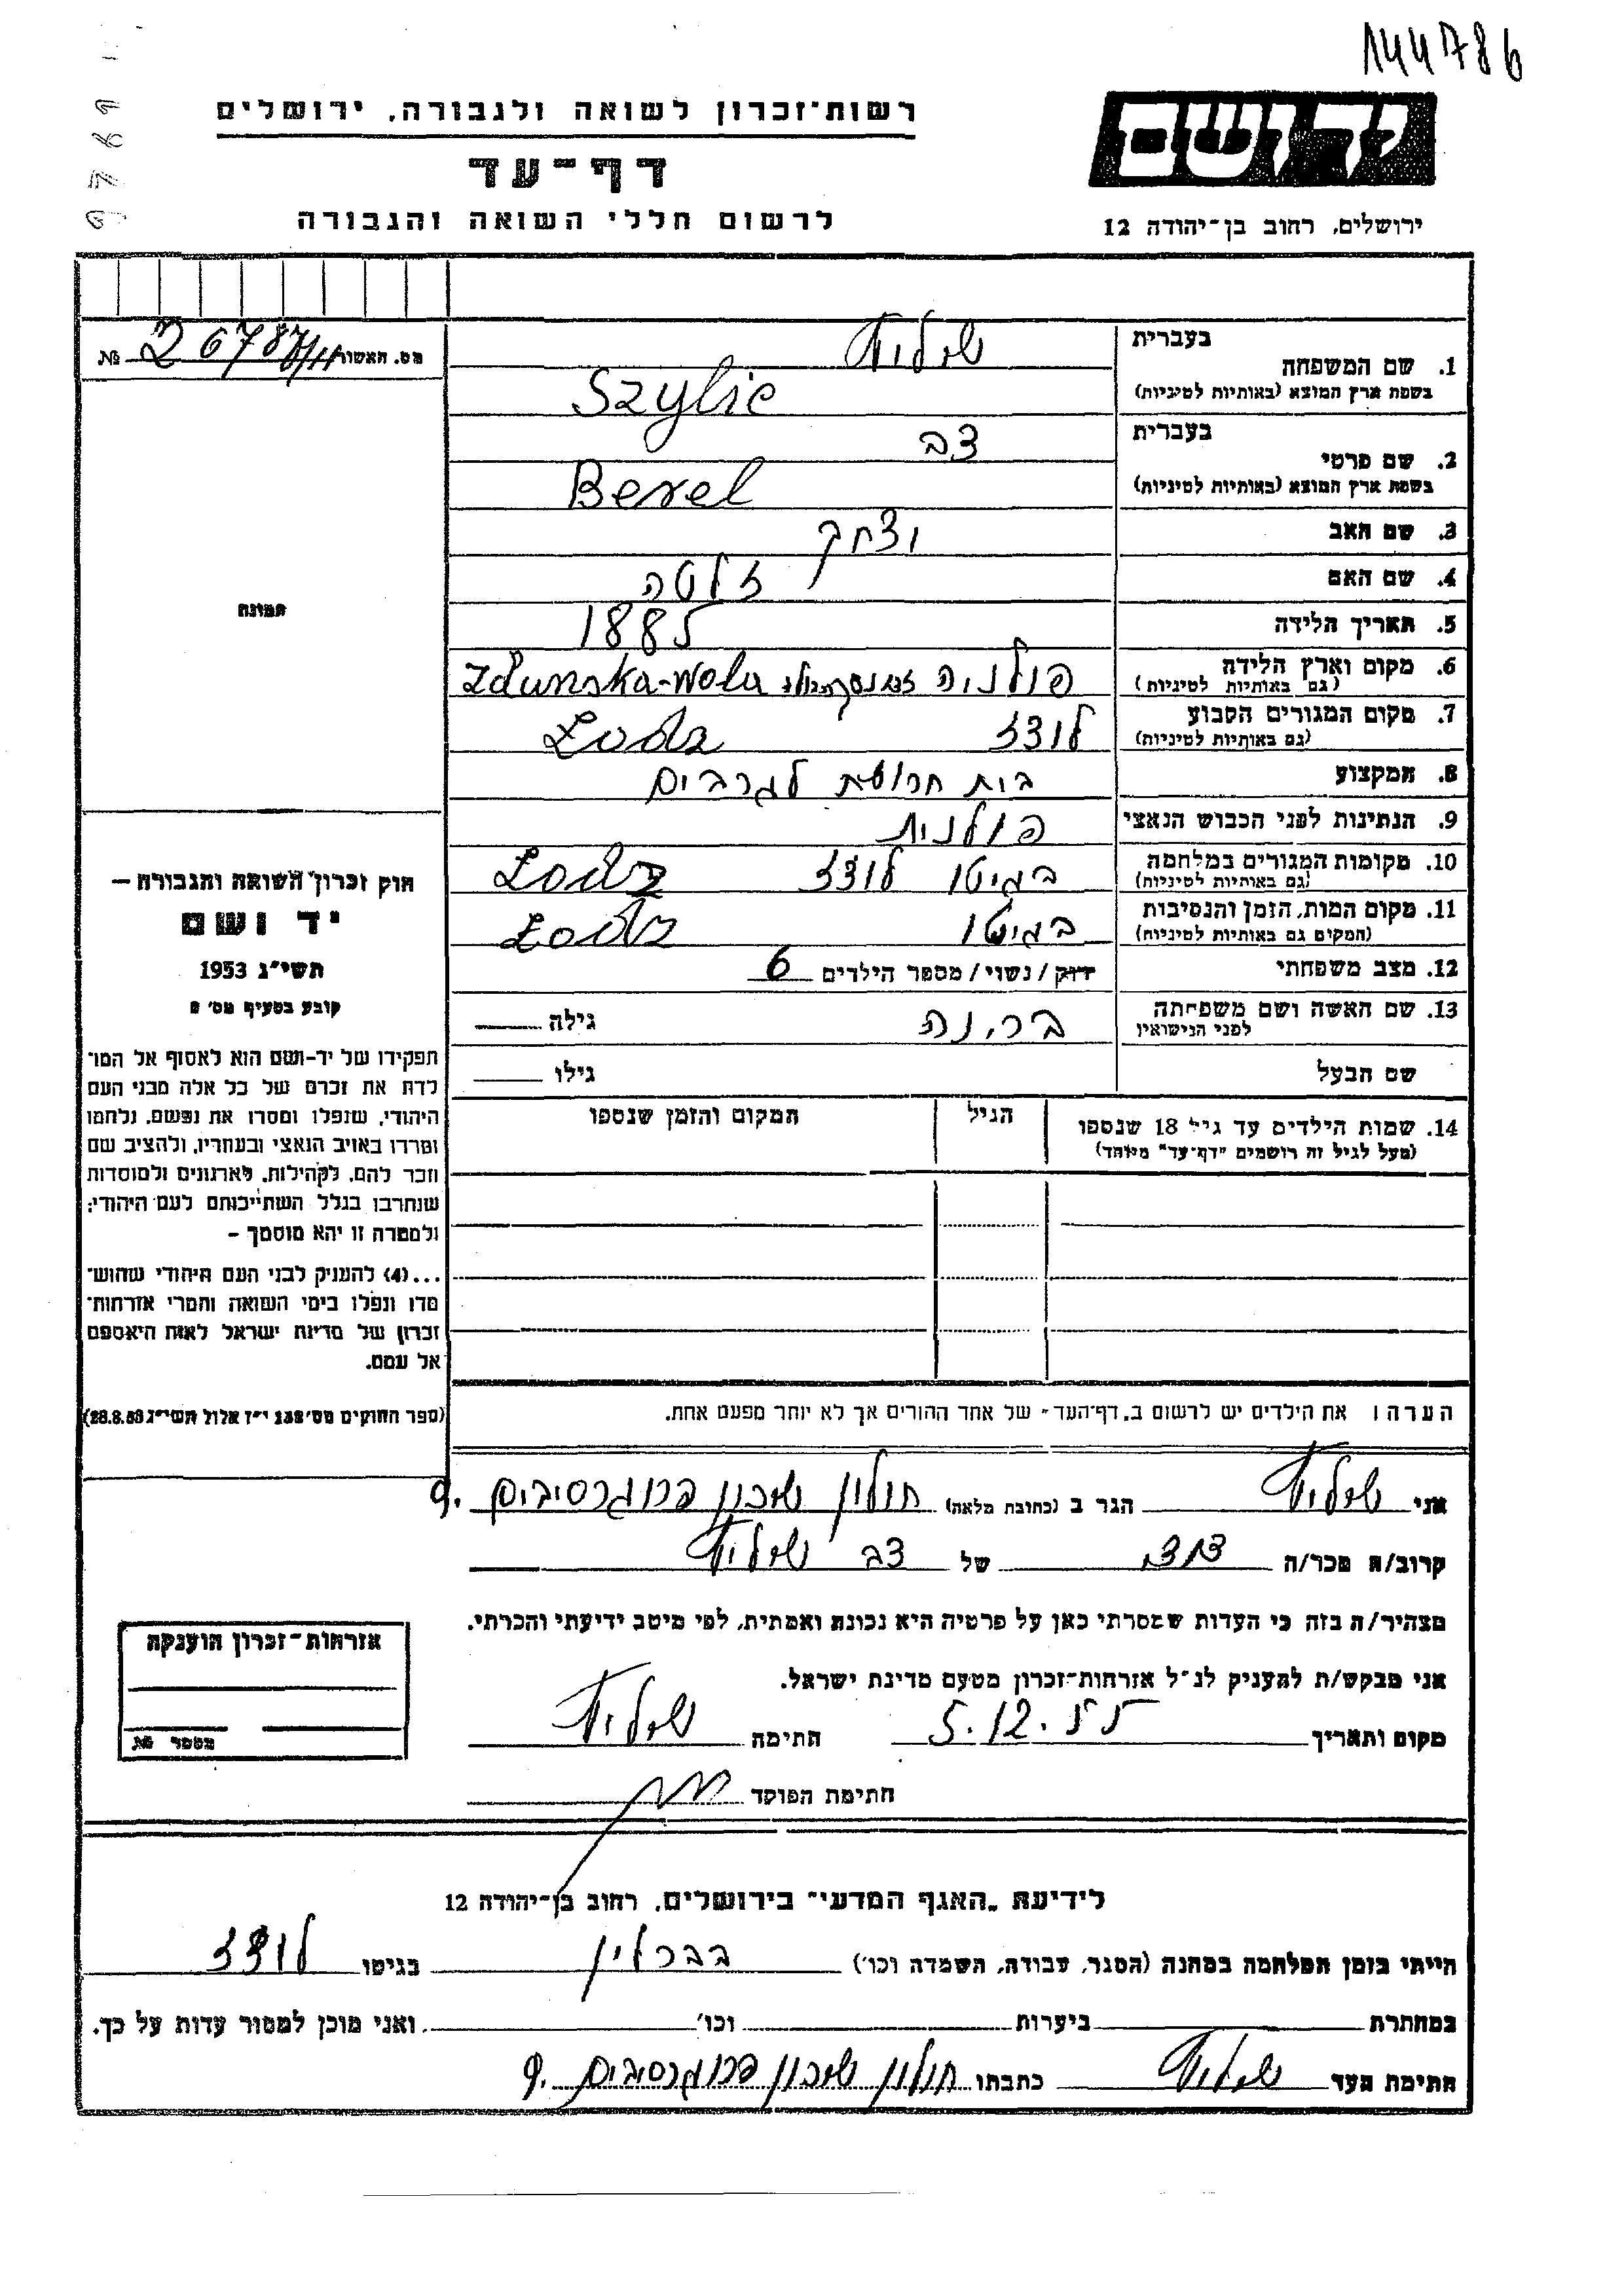 144786
רשות־זכרון לשואה ולגבורה, ירושלים
דף־עד
לרשום חללי השואה והגבורה
יד ושם
ירושלים, רחוב בן־יהודה 12
מס. האשור
№
1. שם המשפחה
בעברית
בשפת ארץ המוצא (באותיות לטיניות)
Szylic
2. שם פרטי
בעברית
דב
בשפת ארץ המוצא (באותיות לטיניות)
Berel
3. שם האב
יצחק
4. שם האם
זלטה
5. תאריך הלידה
1885
6. מקום וארץ הלידה
(גם באותיות לטיניות)
פולניה Zdunska-Wola
7. מקום המגורים הקבוע
(גם באותיות לטיניות)
לודז Lodz
8. המקצוע
בית חרושת לגרבים
9. הנתינות לפני הכבוש הנאצי
פולנית
10. מקומות המגורים במלחמה
(גם באותיות לטיניות)
בגיטו לודז Lodz
11. מקום המות, הזמן והנסיבות
(המקום גם באותיות לטיניות)
בגיטו Lodz
12. מצב משפחתי
רווק / נשוי / מספר הילדים 6
13. שם האשה ושם משפחתה
לפני הנישואין
גילה
שם הבעל
גילו
14. שמות הילדים עד גיל 18 שנספו
(מעל לגיל זה רושמים "דף־עד" מיוחד)
הגיל
המקום והזמן שנספו
הערה: את הילדים יש לרשום ב„דף־העד" של אחד ההורים אך לא יותר מפעם אחת.
תמונה
חוק זכרון השואה והגבורה –
יד ושם
תשי"ג 1953
קובע בסעיף מס׳ 2
תפקידו של יד־ושם הוא לאסוף אל המו־
לדת את זכרם של כל אלה מבני העם
היהודי, שנפלו ומסרו את נפשם, נלחמו
ומרדו באויב הנאצי ובעוזריו, ולהציב שם
וזכר להם, לקהילות, לארגונים ולמוסדות
שנחרבו בגלל השתייכותם לעם היהודי;
ולמטרה זו יהא מוסמך –
...(4) להעניק לבני העם היהודי שהוש־
מדו ונפלו בימי השואה והמרי אזרחות־
זכרון של מדינת ישראל לאות היאספם
אל עמם.
(ספר החוקים מס׳ 132 י"ז אלול תשי"ג 28.8.53)
אני הגר ב (כתובת מלאה) חולון שכון פרוגרסיבים 9.
קרוב/ה מכר/ה של דב
מצהיר/ה בזה כי העדות שמסרתי כאן על פרטיה היא נכונה ואמתית, לפי מיטב ידיעתי והכרתי.
אני מבקש/ת להעניק לנ"ל אזרחות־זכרון מטעם מדינת ישראל.
מקום ותאריך 5.12.55 חתימה
חתימת הפוקד
אזרחות־זכרון הוענקה
מספר №
לידיעת „האגף המדעי" בירושלים, רחוב בן־יהודה 12
הייתי בזמן המלחמה במחנה (הסגר, עבודה, השמדה וכו׳) בברלין בגיטו לודז
במחתרת ביערות וכו׳ ואני מוכן למסור עדות על כך.
חתימת העד כתבתו חולון שכון פרוגרסיבים 9.